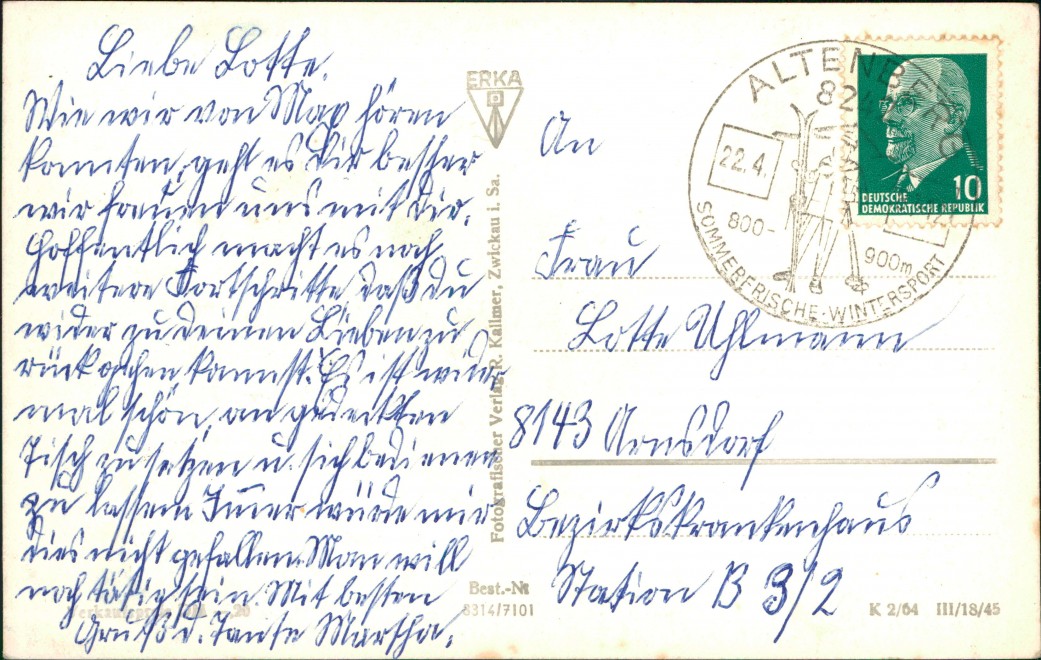 Liebe Lotte.
Wie wir von Max hören
konnten, geht es Dir besser
wir freuen uns mit Dir.
Hoffentlich macht es noch
weitere Fortschritte, daß du
wider zu deinen Lieben zu
rück gehen kannst. Es ist wieder
mal schön, an gedeckten
Tisch zu setzen u. sich bedienen
zu lassen. Immer würde mir
dies nicht gefallen. Man will
noch tätig sein. Mit besten
Gruß d. Tante Martha.
ERKA
Fotografischer Verlag R. Kallmer, Zwickau i. Sa.
Best.-Nr
8314/7101
ALTENBERG
82
22.4.
800-
900m
SOMMERFRISCHE·WINTERSPORT
DEUTSCHE
DEMOKRATISCHE REPUBLIK
10
An
Frau
Lotte Uhlmann
8143 Arnsdorf
Bezirkskrankenhaus
Station B 3/2
K 2/64 III/18/45